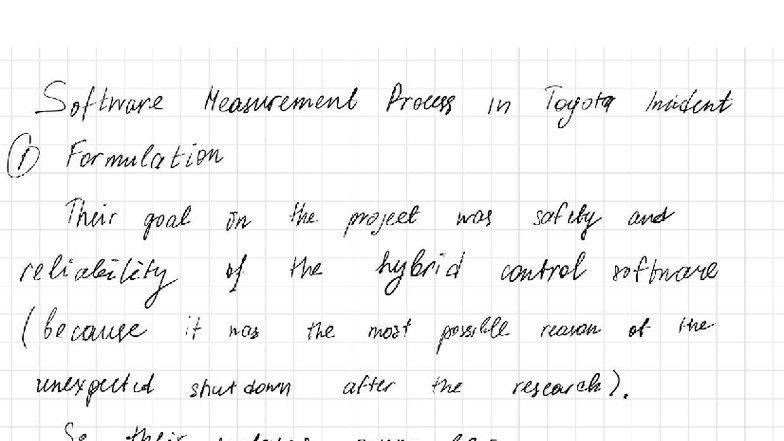 Software Measurement Process in Toyota Incident
① Formulation
Their goal on the project was safety and
reliability of the hybrid control software
(because it was the most possible reason of the
unexpected shut down after the research).
So their